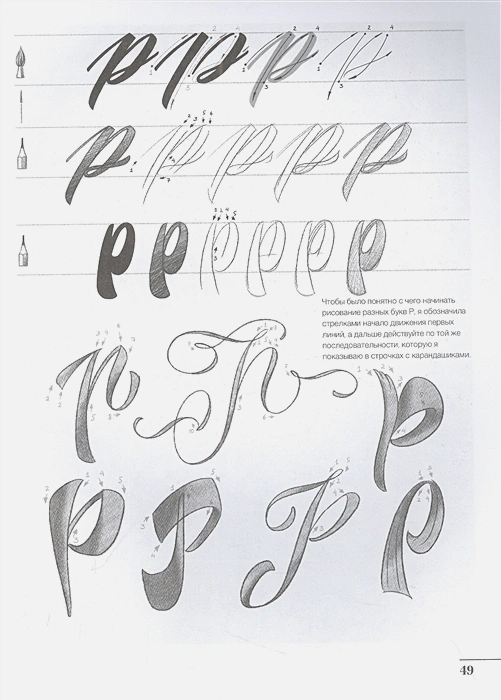 p p p p
p p p p p
p p p p p p
Чтобы было понятно с чего начинать
рисование разных букв Р, я обозначила
стрелками начало движения первых
линий, а дальше действуйте по той же
последовательности, которую я
показываю в строчках с карандашиками.
р р р
р р р р
49